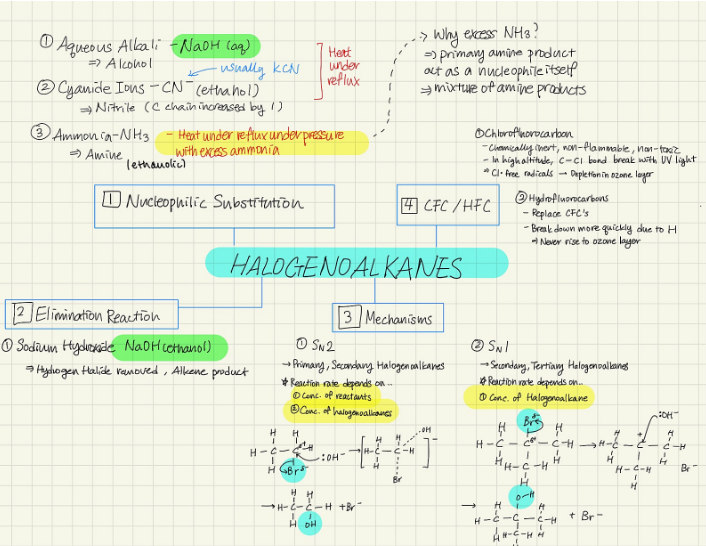 ① Aqueous Alkali - NaOH (aq)
⇒ Alcohol
usually KCN
② Cyanide Ions - CN⁻ (ethanol)
⇒ Nitrile (C chain increased by 1)
Heat
under
reflux
③ Ammonia - NH₃ - Heat under reflux under pressure
with excess ammonia
⇒ Amine
(ethanolic)
Why excess NH₃?
⇒ primary amine product
act as a nucleophile itself
⇒ mixture of amine products
① Chlorofluorocarbon
- Chemically inert, non-flammable, non-toxic
- In high altitude, C-Cl bond break with UV light
⇒ Cl· free radicals → Depletion in ozone layer
② Hydrofluorocarbons
- Replace CFC's
- Break down more quickly due to H
⇒ Never rise to ozone layer
1 Nucleophilic Substitution
4 CFC / HFC
HALOGENOALKANES
2 Elimination Reaction
3 Mechanisms
① Sodium Hydroxide NaOH (ethanol)
⇒ Hydrogen Halide removed, Alkene product
① SN2
→ Primary, Secondary Halogenoalkanes
* Reaction rate depends on...
① Conc. of reactants
② Conc. of halogenoalkanes
H H
H-C-C-H :OH⁻
H Br δ-
H OH
H-C-C-H
H Br
→ H-C-C-H + Br⁻
H OH
② SN1
→ Secondary, Tertiary Halogenoalkanes
* Reaction rate depends on...
① Conc. of Halogenoalkane
Br δ-
H-C-C-C-H
H-C-H
H
:OH⁻
H-C-C-C-H
H-C-H
H
Br⁻
O-H
H-C-C-C-H + Br⁻
H-C-H